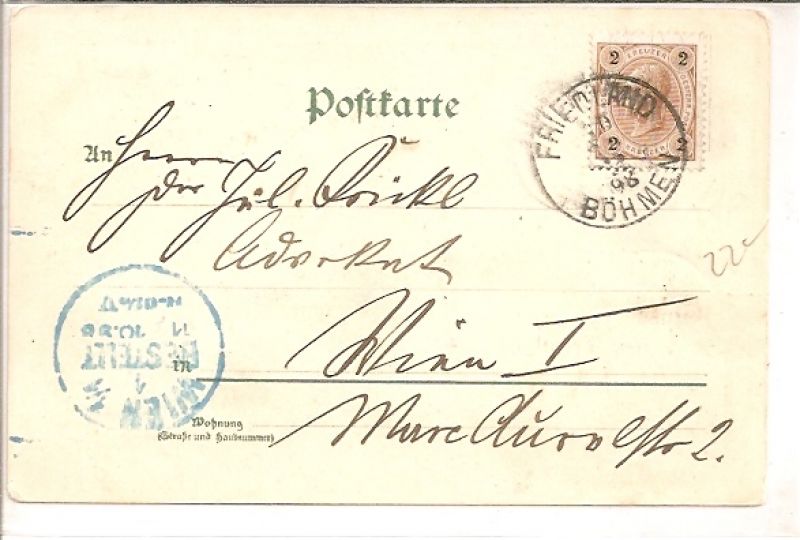 2 KREUZER 2
2 KREUZER 2
FRIEDLAND
98
BÖHMEN
Postkarte
An Herrn
Dr Jul.
Advokat
Wien I
in
Wohnung
(Straße und Hausnummer)
Marc Aurelstr 2.
22
WIEN 1/1
BESTELLT
11 10.98